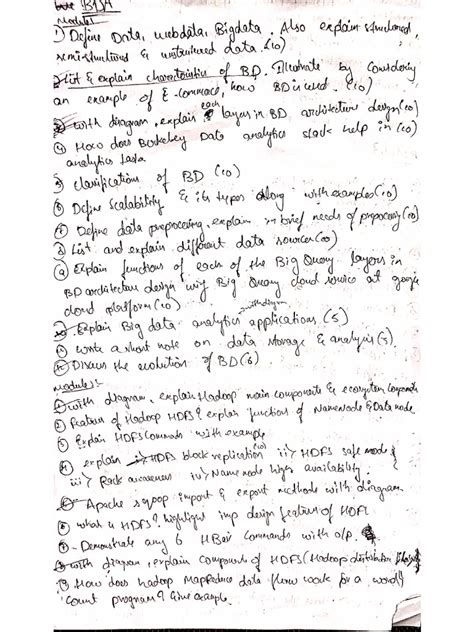 BDA
Module 1
1) Define Data, webdata, Bigdata. Also explain structured
semi-structured & unstructured data. (10)
2) List & explain characteristics of BD. Illustrate by considering
an example of E-commerce, how BD is used. (10)
3) with diagram, explain each layers in BD architecture design (10)
4) How does Berkeley Data analytics stack help in (10)
analytics task
5) classification of BD (10)
6) Define Scalability & its types along with examples (10)
7) Define data preprocessing, explain in brief needs of preprocessing (10)
8) List and explain different data sources (10)
9) Explain functions of each of the Big Query layers in
BD architecture design using Big Query cloud service at google
cloud platform (10)
10) Explain Big data analytics applications with diagram (5)
11) write a short note on data storage & analysis (5)
12) Discuss the evolution of BD (6)
Module 2 :-
1) with diagram, explain Hadoop main components & ecosystem components
2) Features of Hadoop HDFS & explain functions of NameNode & Data node
3) Explain HDFS Commands with example
4) explain i) HDFS block replication (10) ii) HDFS safe mode
iii) Rack awareness iv) Name node high availability
5) Apache sqoop import & export methods with diagram.
6) what is HDFS? highlight imp design features of HDFS
7) Demonstrate any 6 HBase Commands with o/p.
8) with diagram, explain Components of HDFS (Hadoop distribution
9) How does hadoop MapReduce data flow work for a word
Count program? Give example.